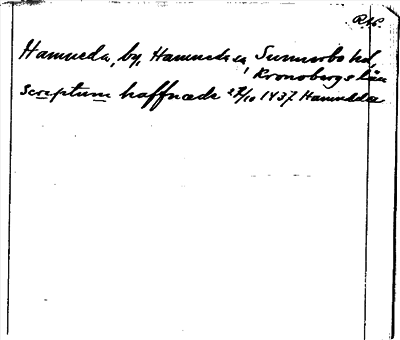 R.A.
Hamneda, by, Hamneda sn, Sunnerbo hd,
Kronobergs län
Scriptum haffnæde 27/10 1437. Hamneda